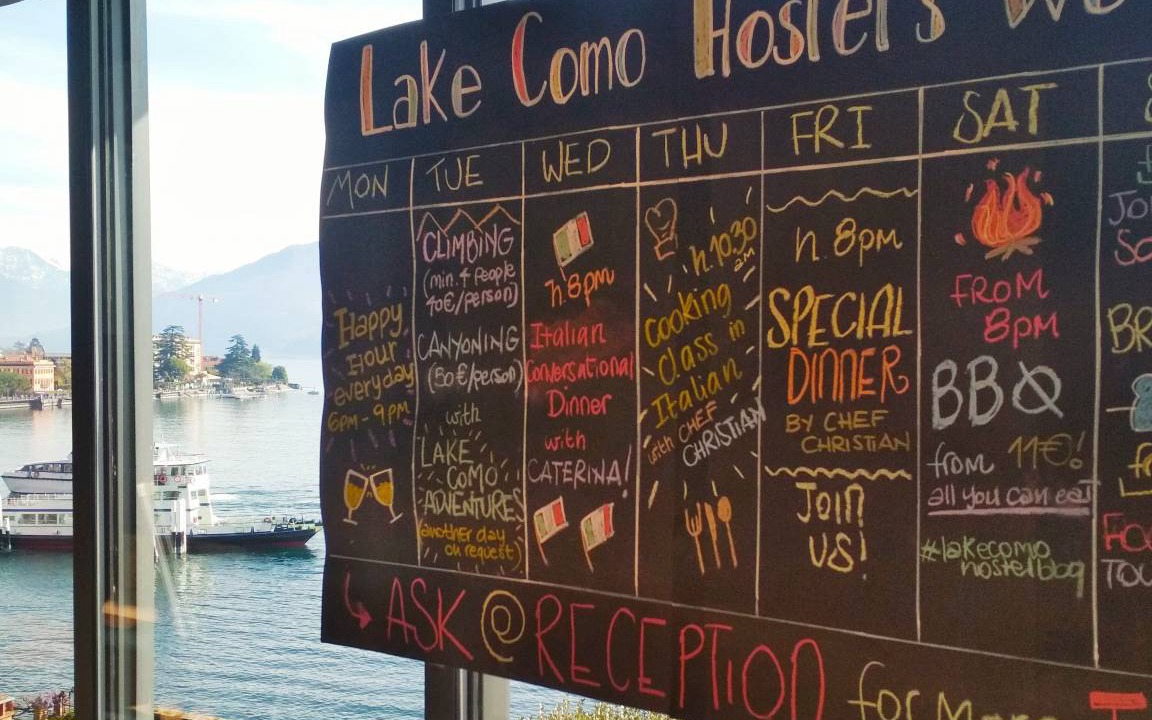 Lake Como Hostels
MON
Happy
Hour
everyday
6pm - 9pm
TUE
CLIMBING
(min. 4 people
40€/person)
CANYONING
(50€/person)
with
LAKE
COMO
ADVENTURES
(another day
on request)
WED
h.8pm
Italian
Conversational
Dinner
with
CATERINA!
THU
h.10.30
AM
cooking
class in
Italian
with CHEF
CHRISTIAN
FRI
h.8pm
SPECIAL
DINNER
BY CHEF
CHRISTIAN
JOIN
US!
SAT
FROM
8pm
BBQ
from 11€!
all you can eat
#lakecomo
hostelblog
ASK @ RECEPTION for